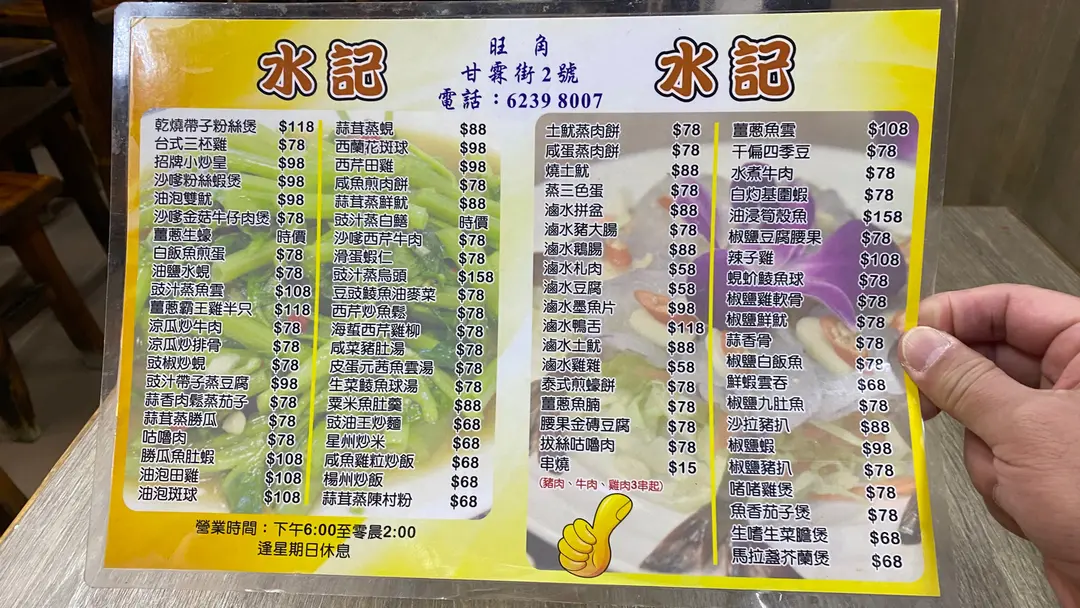 水記
旺 角
甘霖街2號
電話：6239 8007
水記
乾燒帶子粉絲煲 $118
台式三杯雞 $78
招牌小炒皇 $98
沙嗲粉絲蝦煲 $98
油泡雙魷 $98
沙嗲金菇牛仔肉煲 $78
薑蔥生蠔 時價
白飯魚煎蛋 $78
油鹽水蜆 $78
豉汁蒸魚雲 $108
薑蔥霸王雞半只 $118
涼瓜炒牛肉 $78
涼瓜炒排骨 $78
豉椒炒蜆 $78
豉汁帶子蒸豆腐 $98
蒜香肉鬆蒸茄子 $78
蒜茸蒸勝瓜 $78
咕嚕肉 $78
勝瓜魚肚蝦 $108
油泡田雞 $108
油泡斑球 $108
蒜茸蒸蜆 $88
西蘭花斑球 $98
西芹田雞 $98
咸魚煎肉餅 $78
蒜茸蒸鮮魷 $88
豉汁蒸白鱔 時價
沙嗲西芹牛肉 $78
滑蛋蝦仁 $78
豉汁蒸烏頭 $158
豆豉鯪魚油麥菜 $78
西芹炒魚鬆 $78
海蜇西芹雞柳 $78
咸菜豬肚湯 $78
皮蛋元茜魚雲湯 $78
生菜鯪魚球湯 $78
粟米魚肚羹 $88
豉油王炒麵 $68
星州炒米 $68
咸魚雞粒炒飯 $68
楊州炒飯 $68
蒜茸蒸陳村粉 $68
營業時間：下午6:00至零晨2:00
逢星期日休息
土魷蒸肉餅 $78
咸蛋蒸肉餅 $78
燒土魷 $88
蒸三色蛋 $78
滷水拼盆 $88
滷水豬大腸 $78
滷水鵝腸 $88
滷水札肉 $58
滷水豆腐 $58
滷水墨魚片 $98
滷水鴨舌 $118
滷水土魷 $88
滷水雞雜 $58
泰式煎蠔餅 $78
薑蔥魚腩 $78
腰果金磚豆腐 $78
拔絲咕嚕肉 $78
串燒 $15
(豬肉、牛肉、雞肉3串起)
薑蔥魚雲 $108
干偏四季豆 $78
水煮牛肉 $78
白灼基圍蝦 $78
油浸荀殼魚 $158
椒鹽豆腐腰果 $78
辣子雞 $108
蜆蚧鯪魚球 $78
椒鹽雞軟骨 $78
椒鹽鮮魷 $78
蒜香骨 $78
椒鹽白飯魚 $78
鮮蝦雲吞 $68
椒鹽九肚魚 $78
沙拉豬扒 $88
椒鹽蝦 $98
椒鹽豬扒 $78
啫啫雞煲 $78
魚香茄子煲 $78
生啫生菜膽煲 $68
馬拉盞芥蘭煲 $68